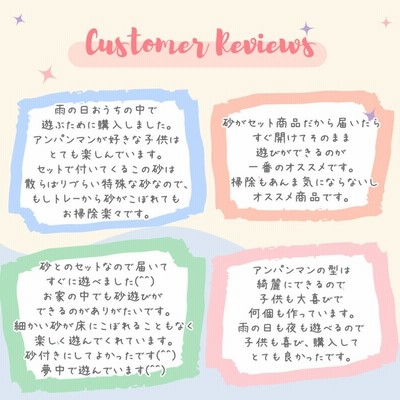 Customer Reviews
雨の日おうちの中で
遊ぶために購入しました。
アンパンマンが好きな子供は
とても楽しんでいます。
セットで付いてくるこの砂は
散らばリづらい特殊な砂なので、
もしトレーから砂がこぼれても
お掃除楽々です。
砂がセット商品だから届いたら
すぐ開けてそのまま
遊びができるのが
一番のオススメです。
掃除もあんま気にならないし
オススメ商品です。
砂とのセットなので届いて
すぐに遊べました(^^)
お家の中でも砂遊びが
できるのがありがたいです。
細かい砂が床にこぼれることもなく
楽しく遊んでくれています。
砂付きにしてよかったです(^^)
夢中で遊んでいます(^^)
アンパンマンの型は
綺麗にできるので
子供も大喜びで
何個も作っています。
雨の日も夜も遊べるので
子供も喜び、購入して
とても良かったです。